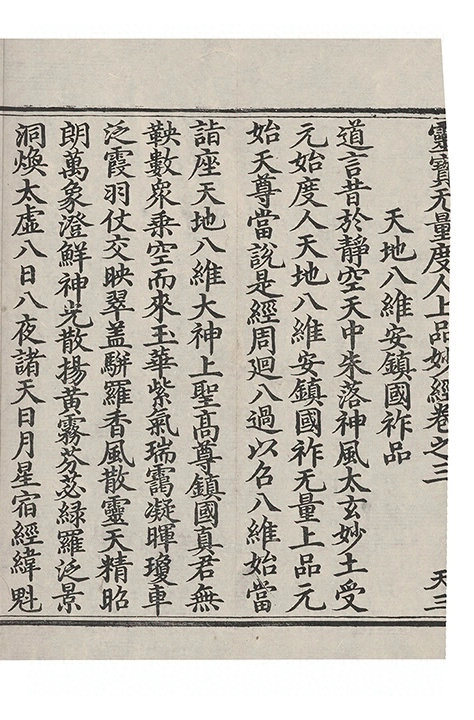 靈寶无量度人上品妙經卷之三 天三
天地八維安鎮國祚品
道言昔於靜空天中朱落神風太玄妙土受
元始度人天地八維安鎮國祚无量上品元
始天尊當說是經周迴八過以召八維始當
詣座天地八維大神上聖高尊鎮國真君無
鞅數衆乘空而來玉華紫氣瑞靄凝暉瓊車
泛霞羽仗交映翠盖駢羅香風散靈天精昭
朗萬象澄鮮神光散揚黃霧芬苾綠羅泛景
洞煥太虛八日八夜諸天日月星宿經緯魁